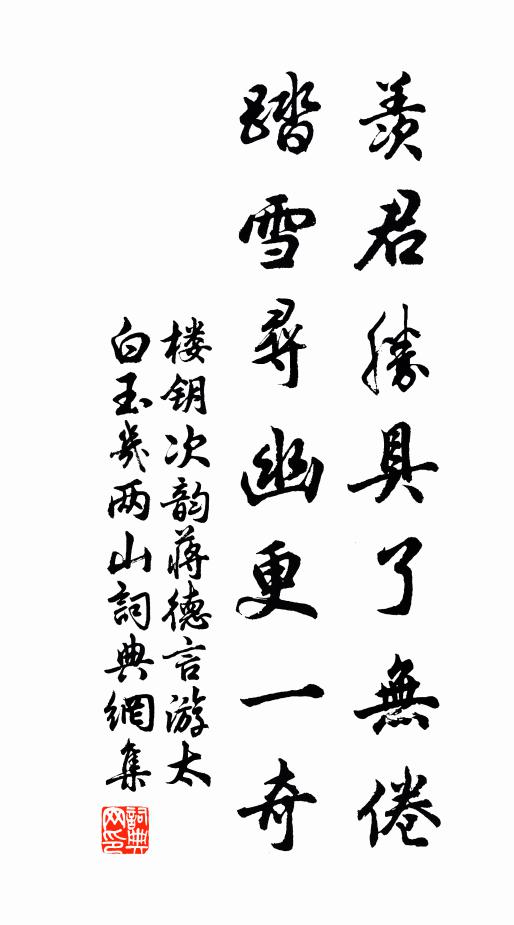 羡君勝具了無倦
踏雪尋幽更一奇
楼钥次韵蒋德言游太
白玉几两山詞典網集
詞典
网印